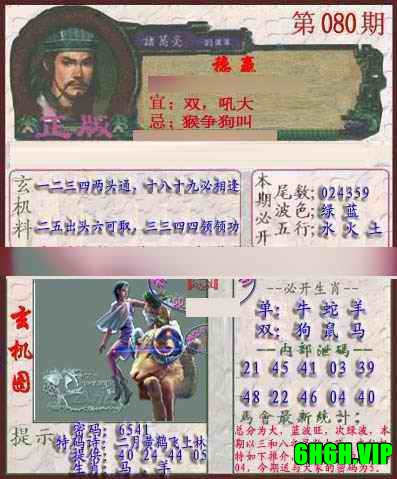 第080期
諸葛亮
穩赢
宜：双，吼大
忌：猴争狗叫
正版
玄机料
一二三四两头通，十八十九必相逢
二五出头六可取，三三四四领领功
本期必开
尾数：024359
波色：绿 蓝
五行：水 火 土
玄机图
必开生肖
单：牛 蛇 羊
双：狗 鼠 马
内部泄码
21 45 41 03 39
48 22 46 04 40
馬會最新統計：
总分为大，蓝波旺，次绿波，本
期以三和八
04，今期送与大家的密码为5.
提示
密码：6541
特码诗：二月黄鹤飞上林
提供：40 24 44 05
生肖：马、羊
6HGH.VIP